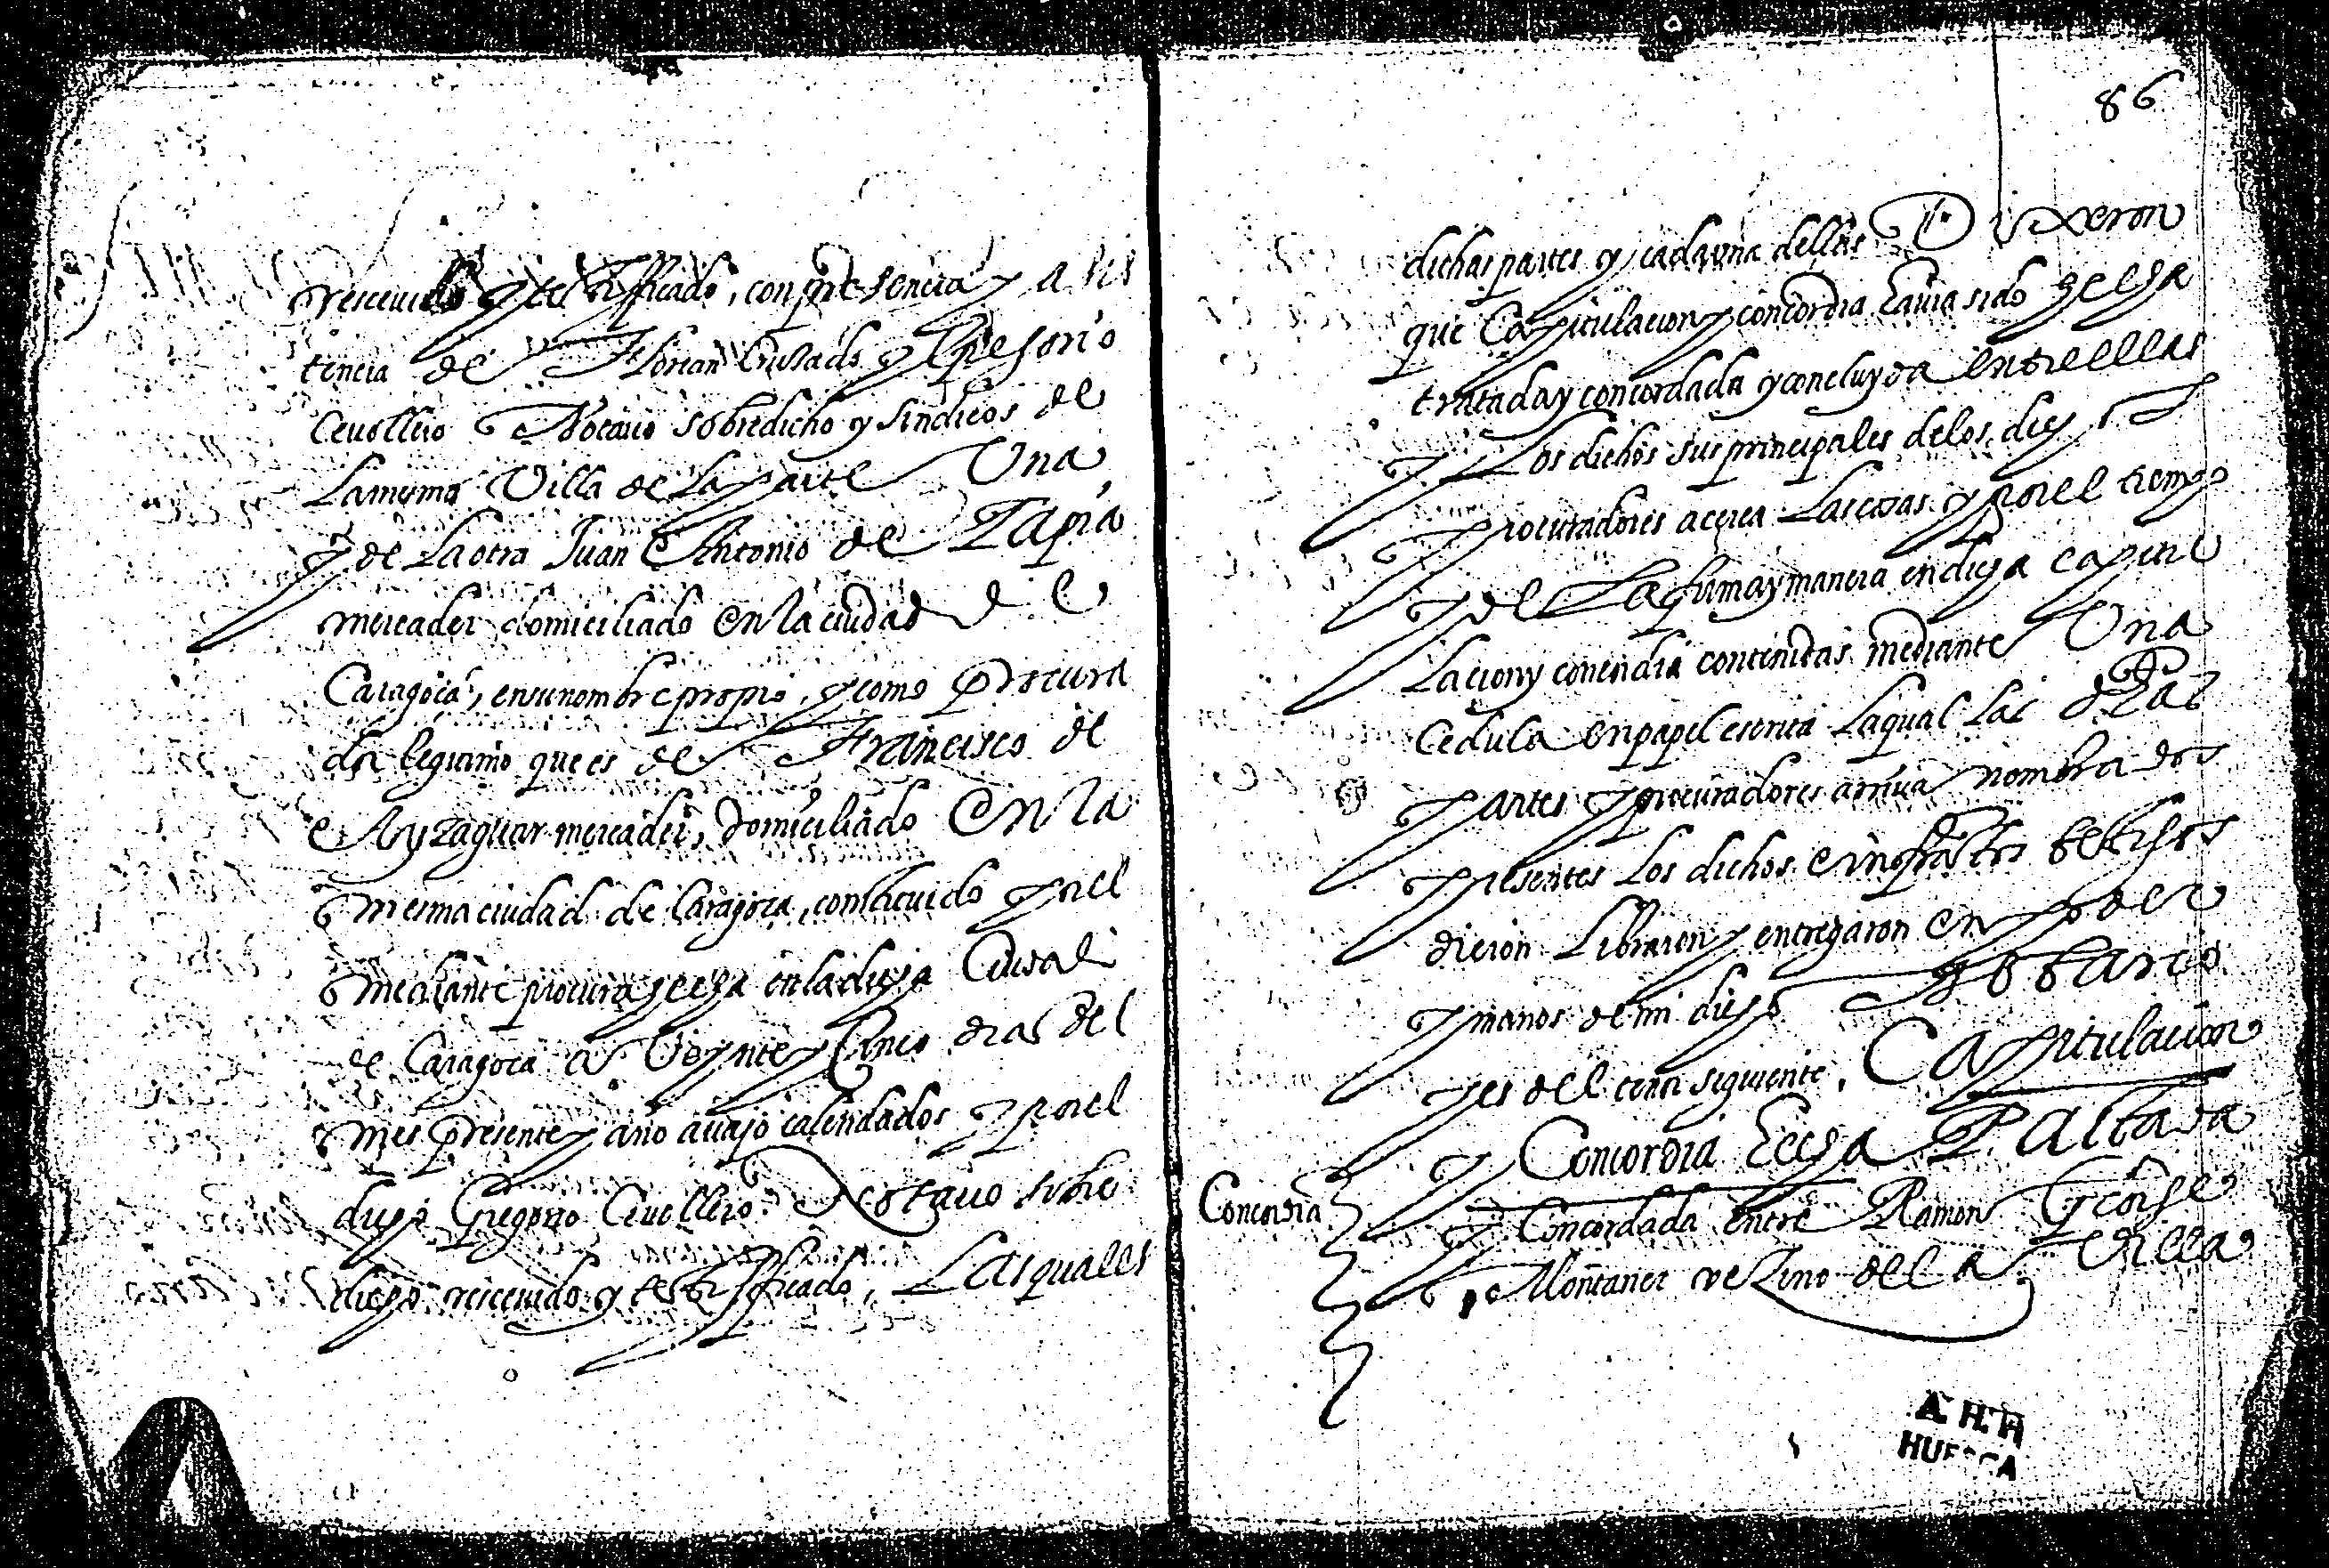 rescevido y testifficado, con presencia y asis
tencia de Florian Crusado y Gregorio
Cevollero Notario sobredicho y sindicos de
La mesma Villa de La parte Una,
y de La otra Juan Antonio de Tapia
mercader domiciliado en la ciudad de
Caragoça, en su nombre propio, y como procura
dor legitimo que es de Francisco de
Ayzaguar mercader, domiciliado en la
mesma ciudad de Caragoça, constituido por el
mediante procura fecha en la dicha Ciudad
de Caragoça a Veynte y Cinco dias del
mes presente y año avajo calendados y por el
dicho Gregorio Cevollero Notario sobre
dicho rescevido y testifficado, Las quales
86
dichas partes y cada una dellas Dixeron
que Capitulacion y concordia havia sido hecha
tratada y concordada y concluyda entre ellas
y Los dichos sus principales de los dichos
procuradores acerca Las cosas y por el tiempo
y de La forma y manera en dicha capitu
lacion y concordia contenidas mediante Una
Cedula en papel escrita La qual Las dichas
partes y procuradores arriva nombrados
presentes Los dichos e infrascritos testigos
dieron Libraron y entregaron en poder
y manos de mi dicho Notario
y es del tenor siguiente. Capitulacion
y Concordia hecha Pactada
y Concordada entre Ramon George
Montaner vezino de la Villa
Concordia
A. H. P.
HUESCA